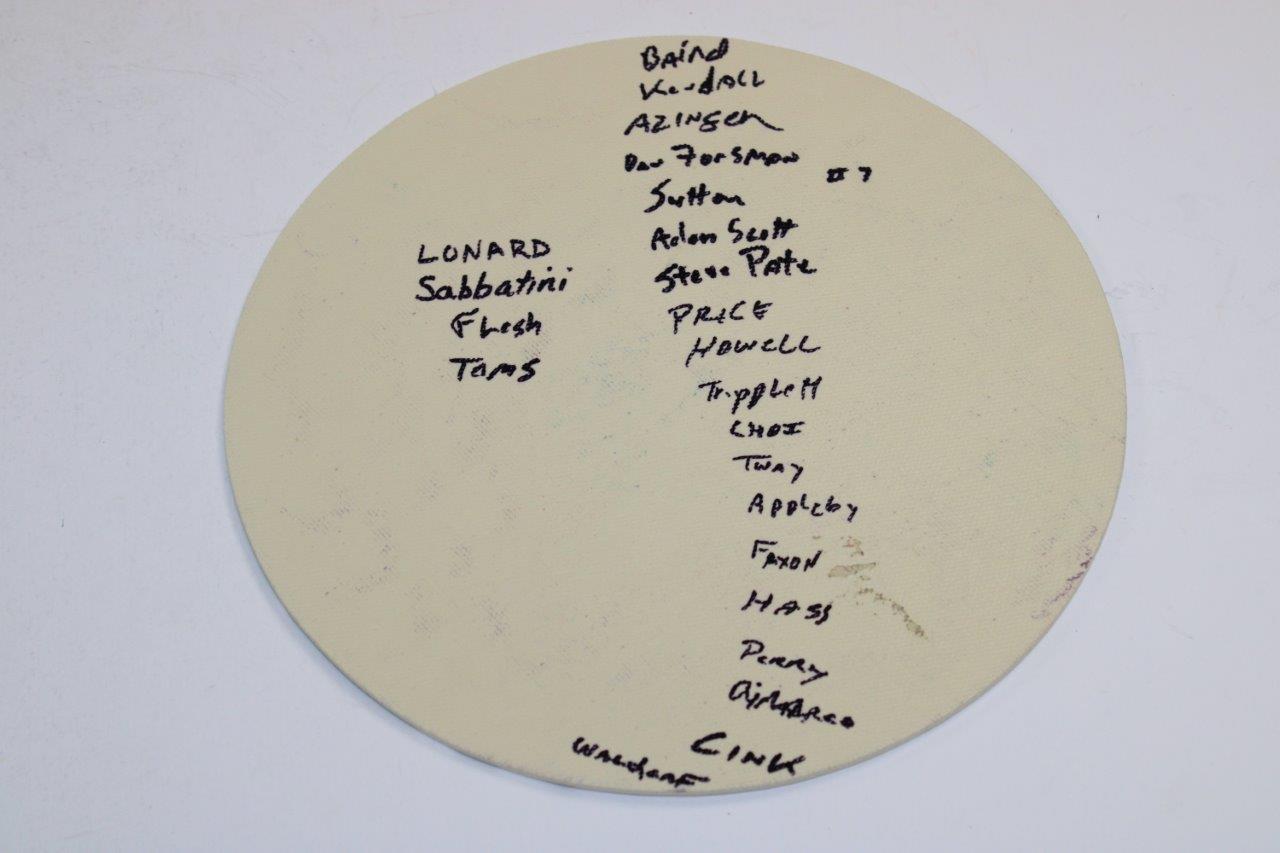 Baird
Kendall
AZINGER
Dan Forsman
#7
Sutton
Adam Scott
Steve Pate
PRICE
HOWELL
Tripplett
CHOI
Tway
Appleby
FAXON
HASS
Perry
DiMarco
CINK
WALDORF
LONARD
Sabbatini
Flesh
Toms